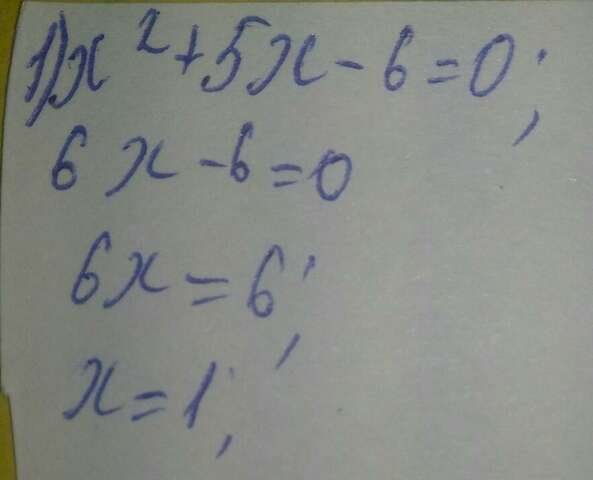 1) x² + 5x - 6 = 0;
6x - 6 = 0
6x = 6;
x = 1;